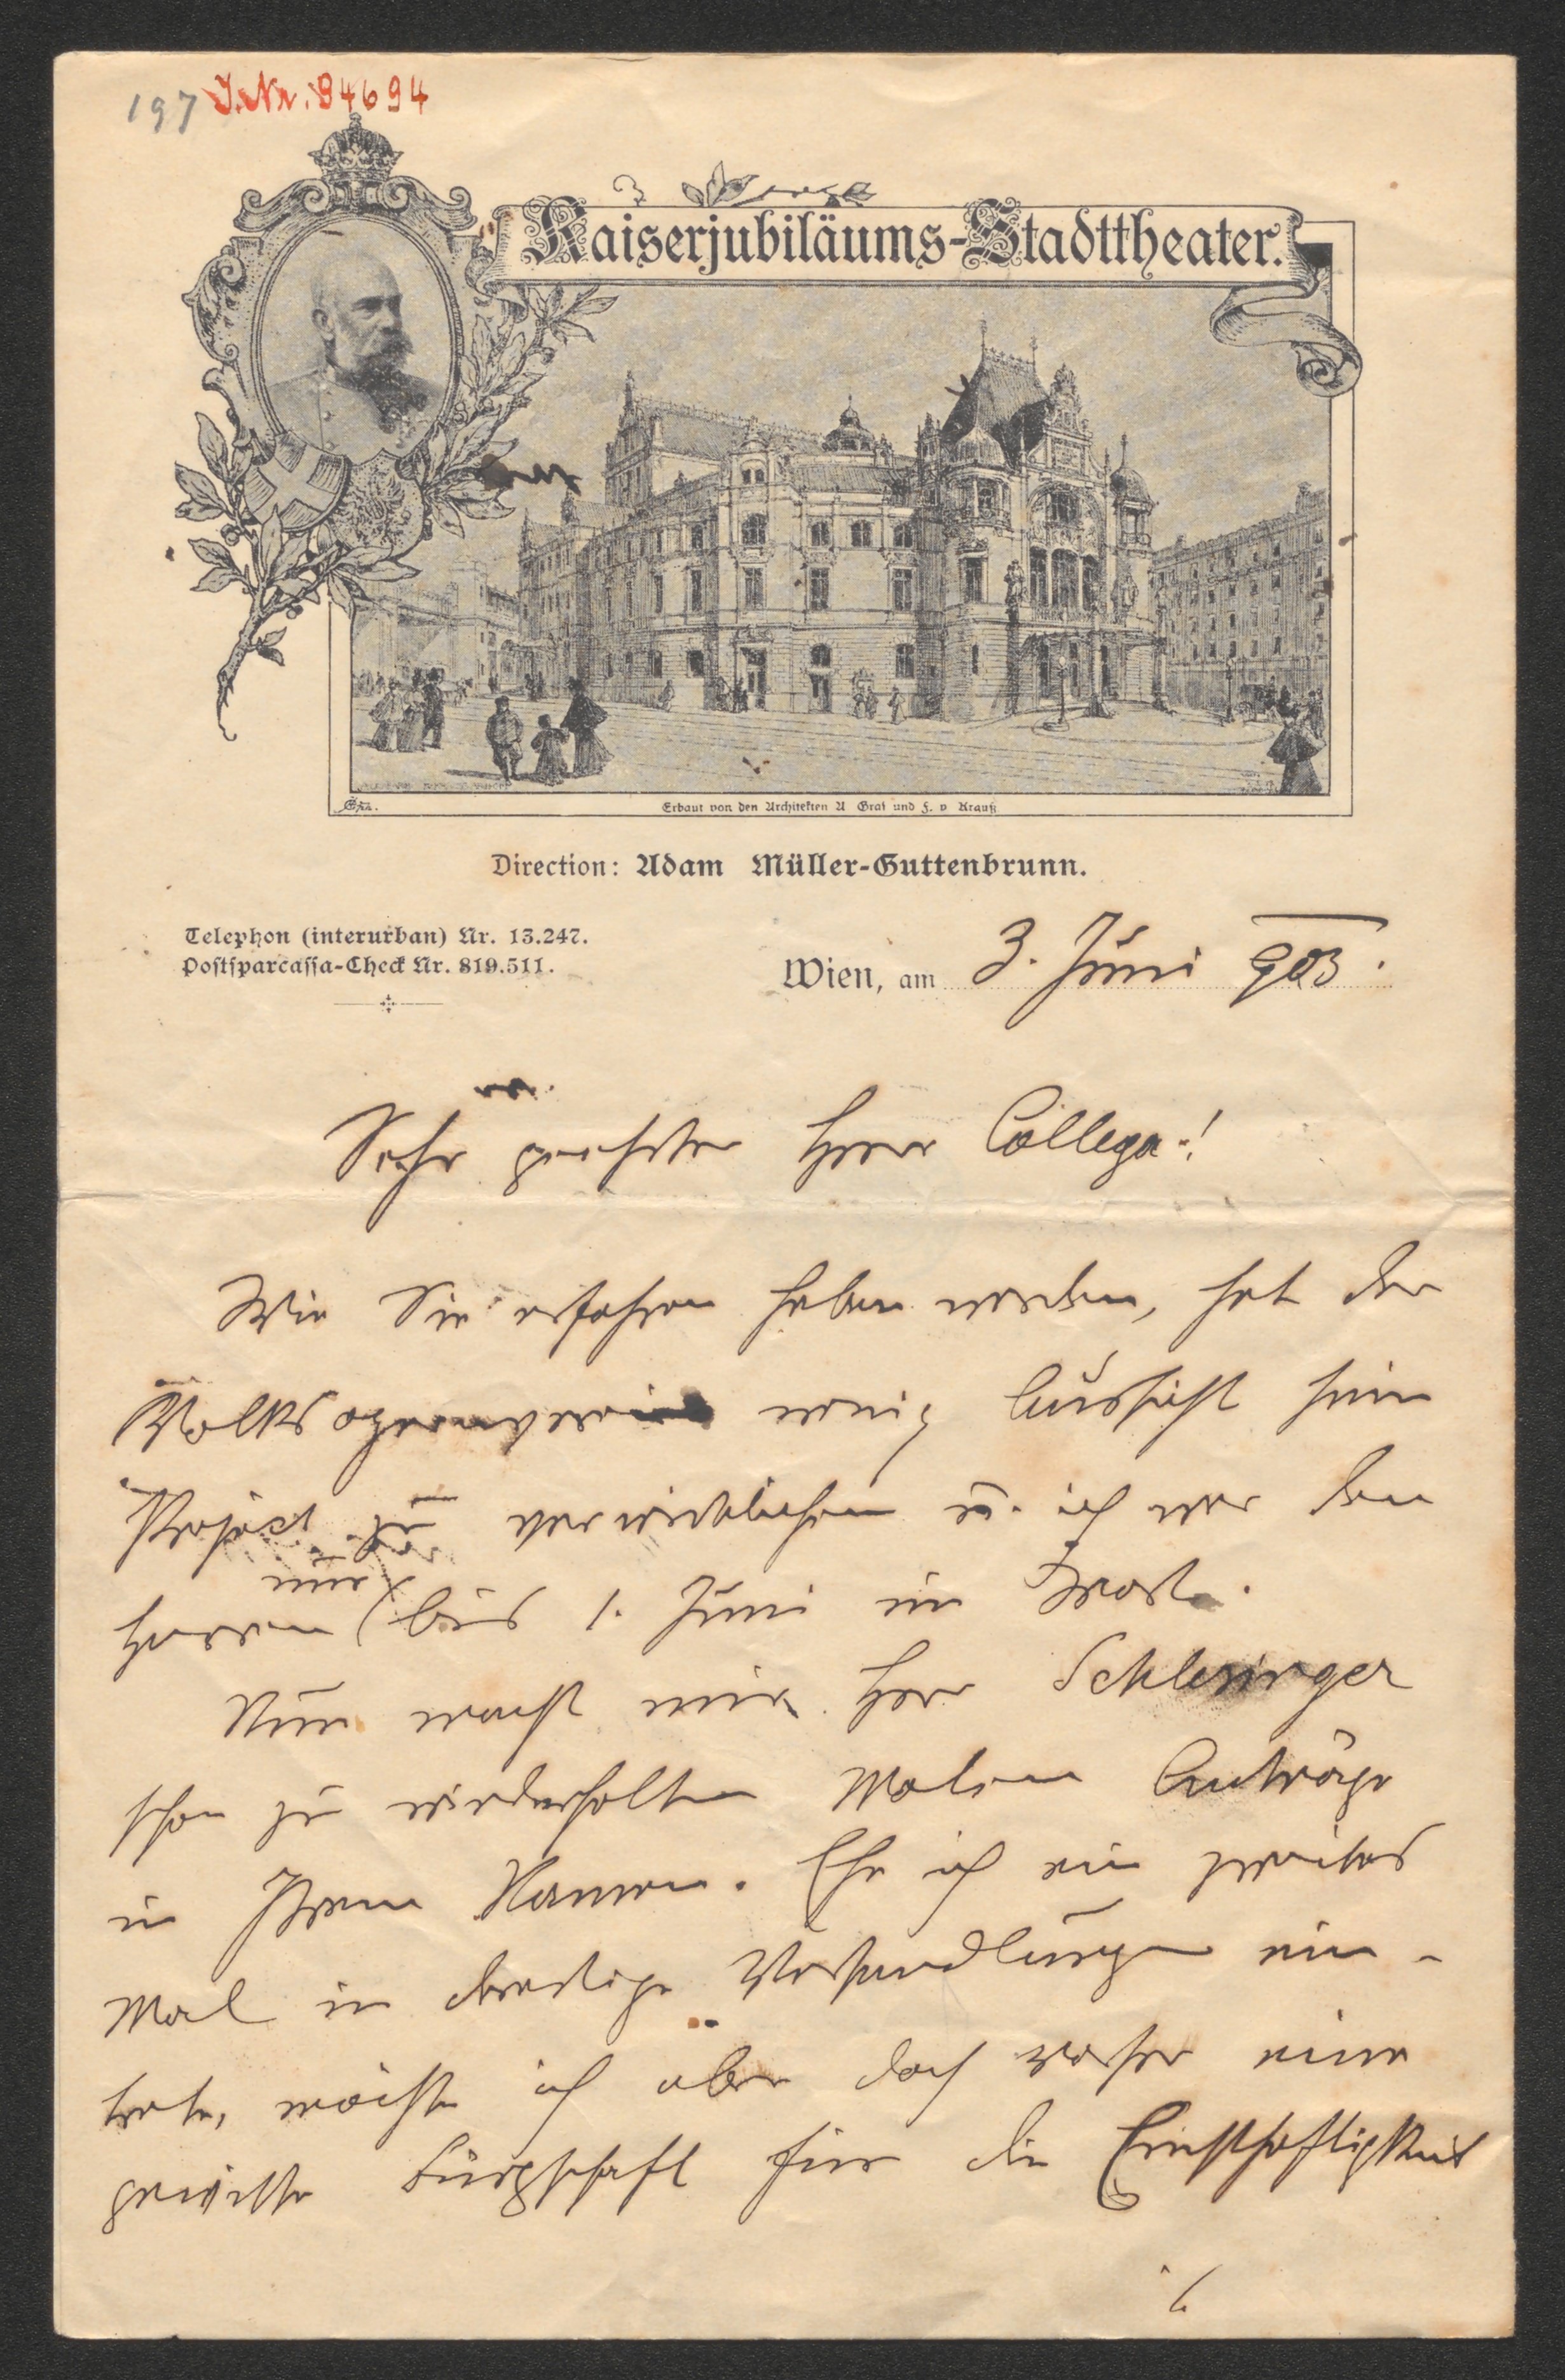 197 J. Nr. 94694
Kaiserjubiläums-Stadttheater.
Erbaut von den Architekten A Graf und F. v Krauß
Direction: Adam Müller-Guttenbrunn.
Telephon (interurban) Nr. 13.247.
Postsparcassa-Check Nr. 819.511.
Wien, am 3. Juni 903.
Sehr geehrter Herr Collega!
Wie Sie erfahren haben werden, hat der
Volksopernverein wenig Aussicht sein
Project zu verwirklichen u. ich war den
nur
Herren bis 1. Juni im Wort.
Nun macht mir Herr Schlesinger
schon zu wiederholten Malen Anträge
in Ihrem Namen. Ehe ich ein zweites
Mal in derartige Verhandlungen ein-
trete, möchte ich aber doch vorher eine
gewisse Bürgschaft für die Ernsthaftigkeit
./.